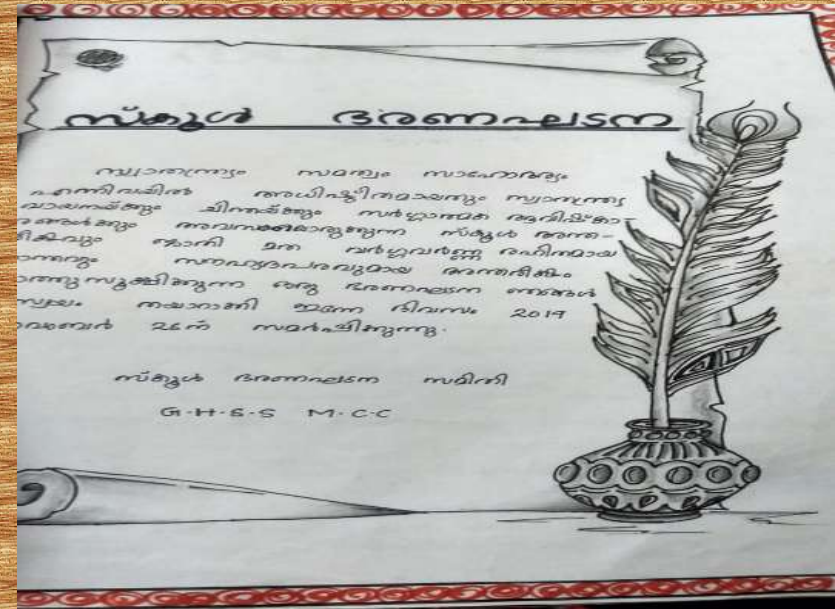 സ്കൂൾ ഭരണഘടന
സ്വാതന്ത്ര്യം സമത്വം സാഹോദര്യം
എന്നിവയിൽ അധിഷ്ഠിതമായതും സ്വാതന്ത്ര്യ
വായനയ്ക്കും ചിന്തയ്ക്കും സർഗ്ഗാത്മക ആവിഷ്കാ-
രങ്ങൾക്കും അവസരമൊരുക്കുന്ന സ്കൂൾ അന്ത-
രീക്ഷവും ജാതി മത വർഗ്ഗവർണ്ണ രഹിതമായ
സൗഹൃദപരവുമായ അന്തരീക്ഷം
കാത്തുസൂക്ഷിക്കുന്ന ഒരു ഭരണഘടന ഞങ്ങൾ
സ്വയം തയാറാക്കി ഇന്നേ ദിവസം 2019
നവംബർ 26ന് സമർപ്പിക്കുന്നു.
സ്കൂൾ ഭരണഘടന സമിതി
G.H.S.S M.C.C